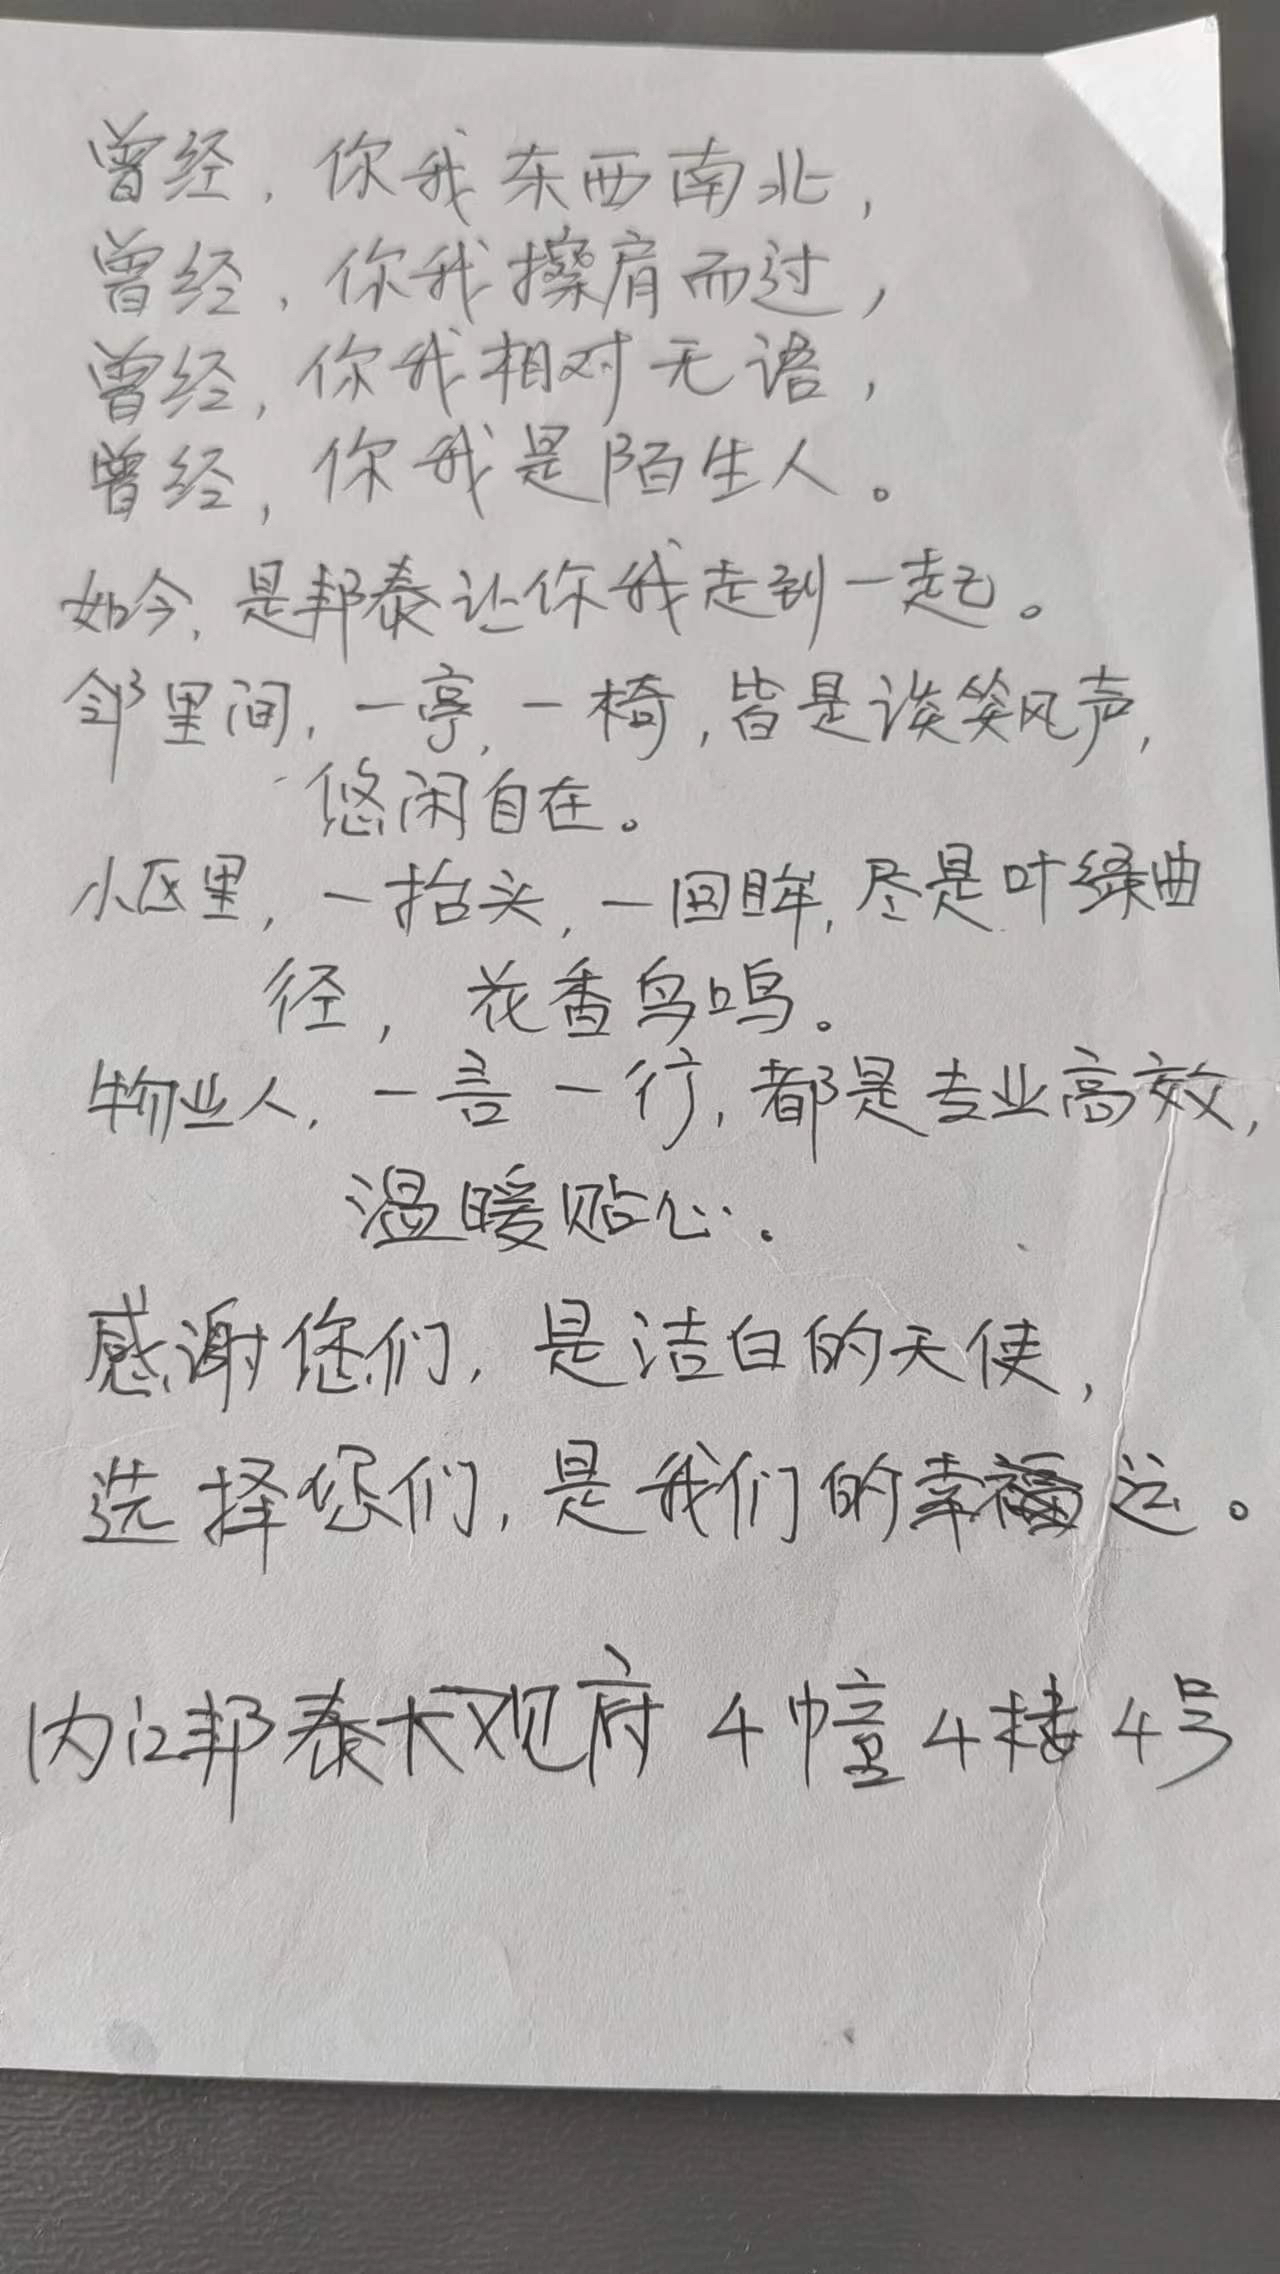 曾经，你我东西南北，
曾经，你我擦肩而过，
曾经，你我相对无语，
曾经，你我是陌生人。
如今，是邦泰让你我走到一起。
邻里间，一亭，一椅，皆是谈笑风声，
悠闲自在。
小区里，一抬头，一回眸，尽是叶绿曲
径，花香鸟鸣。
物业人，一言一行，都是专业高效，
温暖贴心。
感谢您们，是洁白的天使，
选择您们，是我们的幸运。
内江邦泰大观府4幢4楼4号